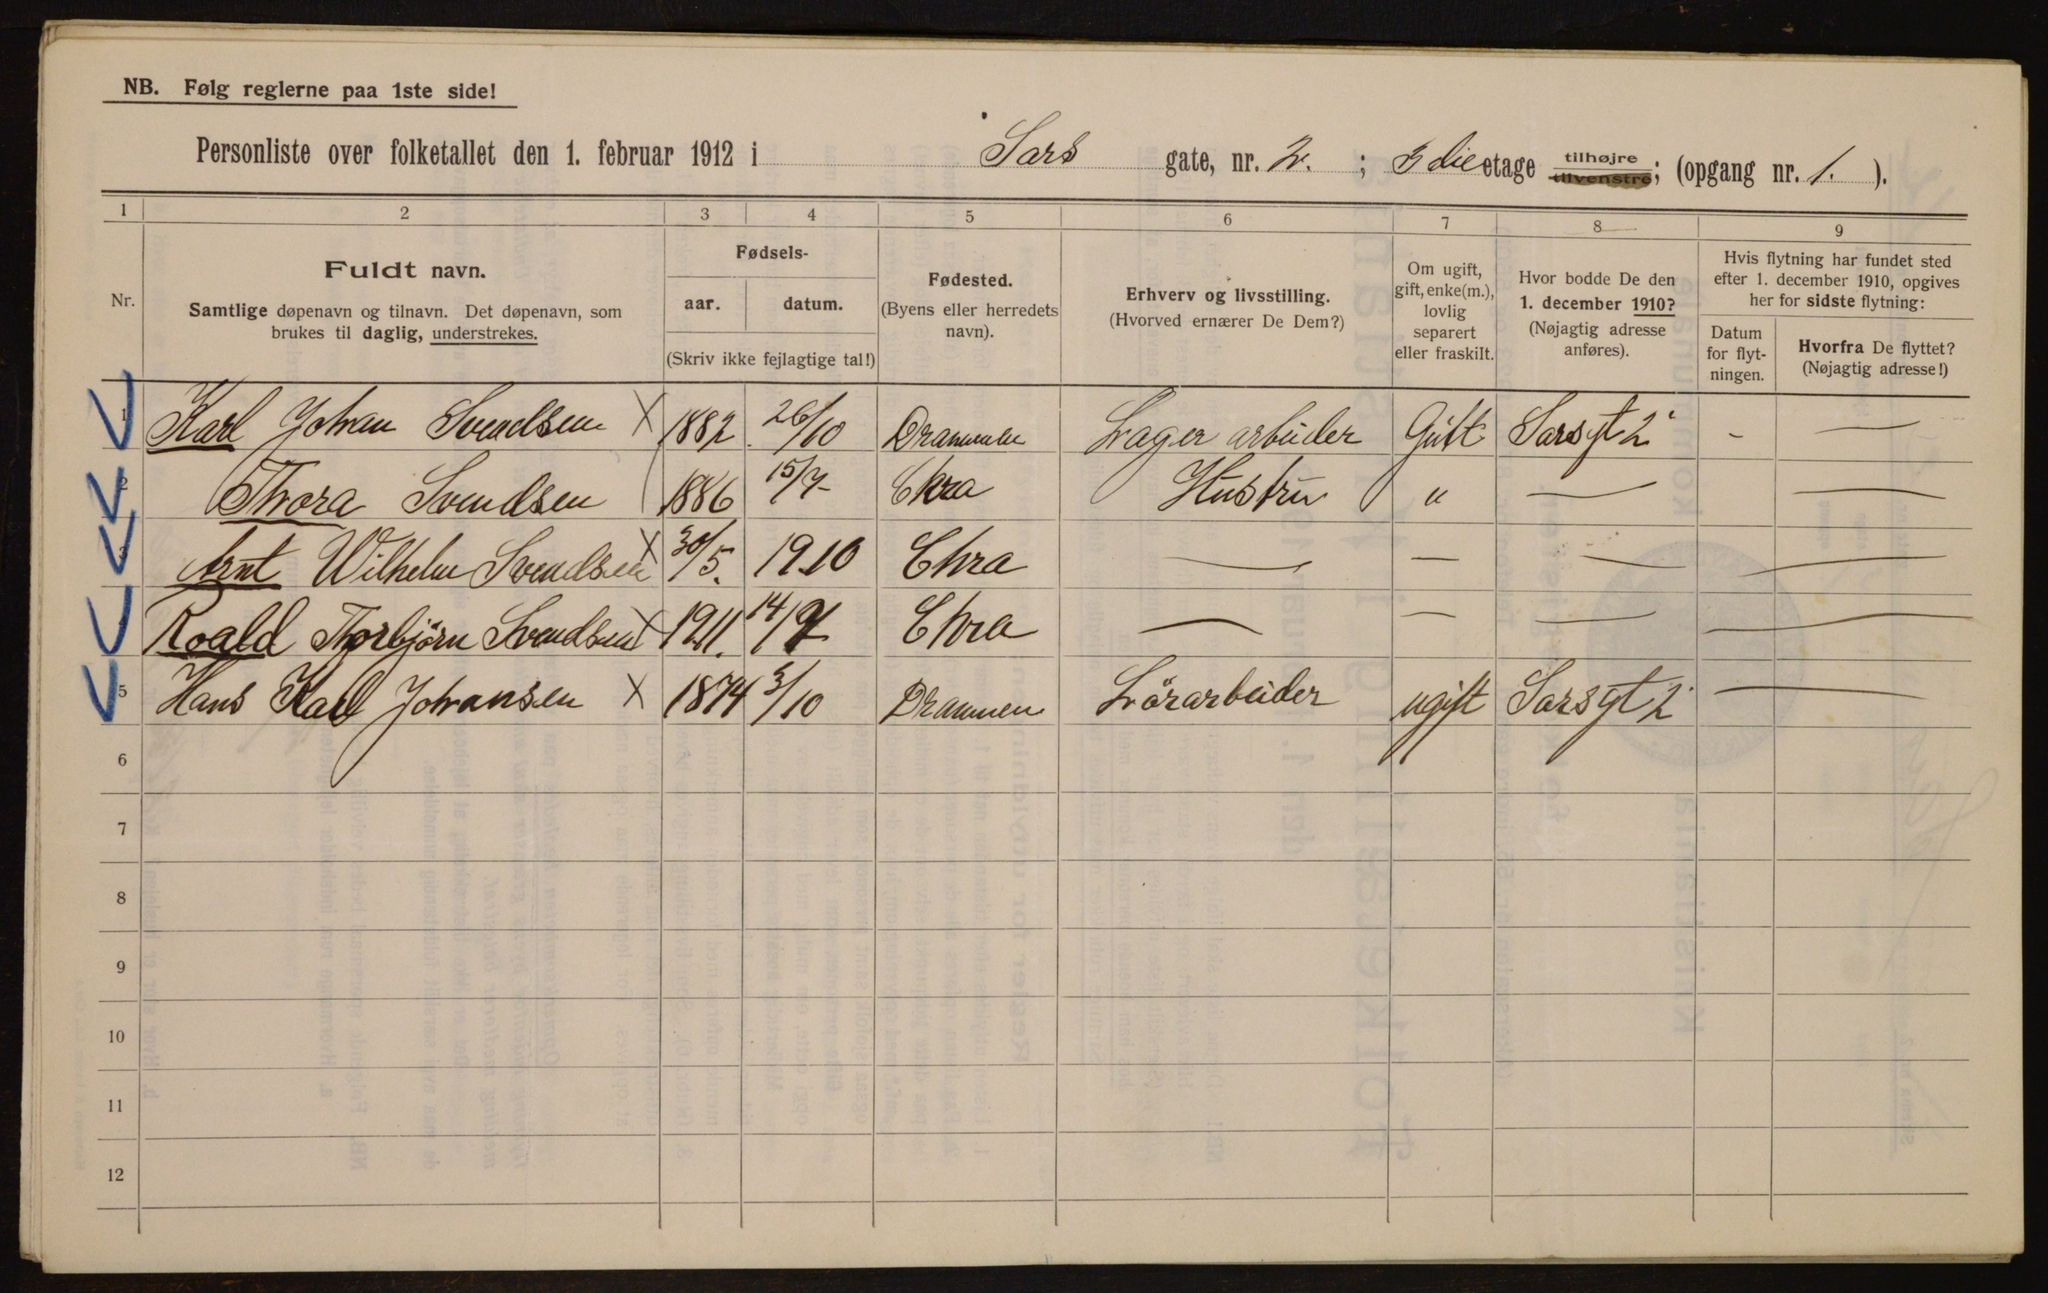 NB. Følg reglerne paa 1ste side!
Personliste over folketallet den 1. februar 1912 i Sars gate, nr. 2. ; 3die etage tilhøjre tilvenstre; (opgang nr. 1. ).
1 2 3 4 5 6 7 8 9
Nr.
Fuldt navn.
Samtlige døpenavn og tilnavn. Det døpenavn, som
brukes til daglig, understrekes.
Fødsels-
aar. datum.
(Skriv ikke fejlagtige tal!)
Fødested.
(Byens eller herredets
navn).
Erhverv og livsstilling.
(Hvorved ernærer De Dem?)
Om ugift,
gift, enke(m.),
lovlig
separert
eller fraskilt.
Hvor bodde De den
1. december 1910?
(Nøjagtig adresse
anføres).
Hvis flytning har fundet sted
efter 1. december 1910, opgives
her for sidste flytning:
Datum
for flyt-
ningen.
Hvorfra De flyttet?
(Nøjagtig adresse!)
1 Karl Johan Svendsen X 1882 26/10 Drammen Lager arbeider Gift Sarsgt 2 - —
2 Thora Svendsen 1886 15/7 Chra Hustru " — —
3 Arnt Wilhelm Svendsen X 30/5. 1910 Chra — — — —
4 Roald Thorbjørn Svendsen X 1911. 14/9 Chra — — — —
5 Hans Karl Johansen X 1874 3/10 Drammen Lörarbeider ugift Sarsgt 2 —
6
7
8
9
10
11
12